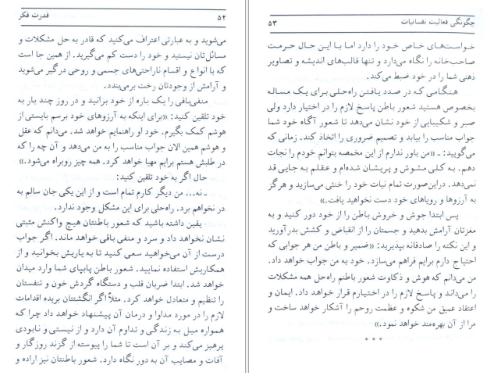 چگونگی فعالیت نفسانیات ۵۳
خواست‌های خاص خود را دارد اما با این حال حرمت
صاحب‌خانه را نگاه می‌دارد و تنها قالب‌های اندیشه و تصاویر
ذهنی شما را در خود ضبط می‌کند.
هنگامی که در صدد یافتن راه‌حلی برای یک مساله
بخصوص هستید شعور باطن پاسخ لازم را در اختیار دارد ولی
صبر و شکیبایی از خود نشان می‌دهد تا شعور آگاه خود شما
جواب مناسب را بیابد و تصمیم ضروری را اتخاذ کند. زمانی که
می‌گویید: ـ «من باور ندارم از این مخمصه بتوانم خودم را نجات
دهم. به کلی مشوش و پریشان شده‌ام و عقلم به جایی قد
نمی‌دهد. دراین‌صورت تمام نیات خود را خنثی می‌سازید و هرگز
به آرزوها و رویاهای خود دست نخواهید یافت.»
پس ابتدا جوش و خروش باطن را از خود دور کنید و به
مغزتان آرامش بدهید و جسمتان را از انقباض و کشش بدرآورید
و این نکته را صادقانه بپذیرید: «ضمیر و باطن من هر جوابی که
احتیاج دارم برایم فراهم می‌سازد. خودم به من جواب خواهد داد.
من می‌دانم که هوش و ذکاوت شعور باطنم راه‌حل همه مشکلات
را می‌داند و پاسخ لازم را در اختیارم قرار خواهد داد. ایمان و
اعتقاد عمیق من شکوه و عظمت روحم را آشکار خواهد ساخت و
مرا از آن بهره‌مند خواهد نمود.»
* * *
۵۲ قدرت فکر
می‌شوید و به عبارتی اعتراف می‌کنید که قادر به حل مشکلات و
مسائل‌تان نیستید و خود را دست کم می‌گیرید. از همین جا است
که با انواع و اقسام ناراحتی‌های جسمی و روحی درگیر می‌شوید
و آرامش از وجودتان رخت برمی‌بندد.
منفی‌بافی را یک باره از خود برانید و در روز چند بار به
خود تلقین کنید: «برای اینکه به آرزوهای خود برسم بایستی از
هوشم کمک بگیرم. خود او راهنمایم خواهد شد. می‌دانم که عقل
و هوشم همین الان جواب مناسب را به من می‌دهد و آن چه را که
در طلبش هستم برایم مهیا خواهد کرد. همه چیز روبراه می‌شود.»
حال اگر به خود تلقین کنید:
ـ نه... من دیگر کارم تمام است و از این یکی جان سالم به
در نخواهم برد. راه‌حلی برای این مشکل وجود ندارد.
یقین داشته باشید که شعور باطنتان هیچ واکنش مثبتی
نشان نخواهد داد و سرد و منفی باقی خواهد ماند. اگر جواب
درست از آن می‌خواهید سعی کنید تا به یاریش بخوانید و از
همکاریش استفاده نمایید. شعور باطن پابپای شما وارد میدان
خواهد شد. ابتدا ضربان قلب و دستگاه گردش خون و تنفستان
را تنظیم و متعادل خواهد کرد. مثلاً اگر انگشتتان بریده اقدامات
لازم را در مورد مداوا و درمان آن پیشنهاد خواهد داد چرا که
همواره میل به زندگی و تداوم آن دارد و از نیستی و نابودی
پرهیز می‌کند و بر آن است تا شما را پیوسته از گزند روزگار و
آفات و مصایب آن به دور نگاه دارد. شعور باطنتان نیز اراده و